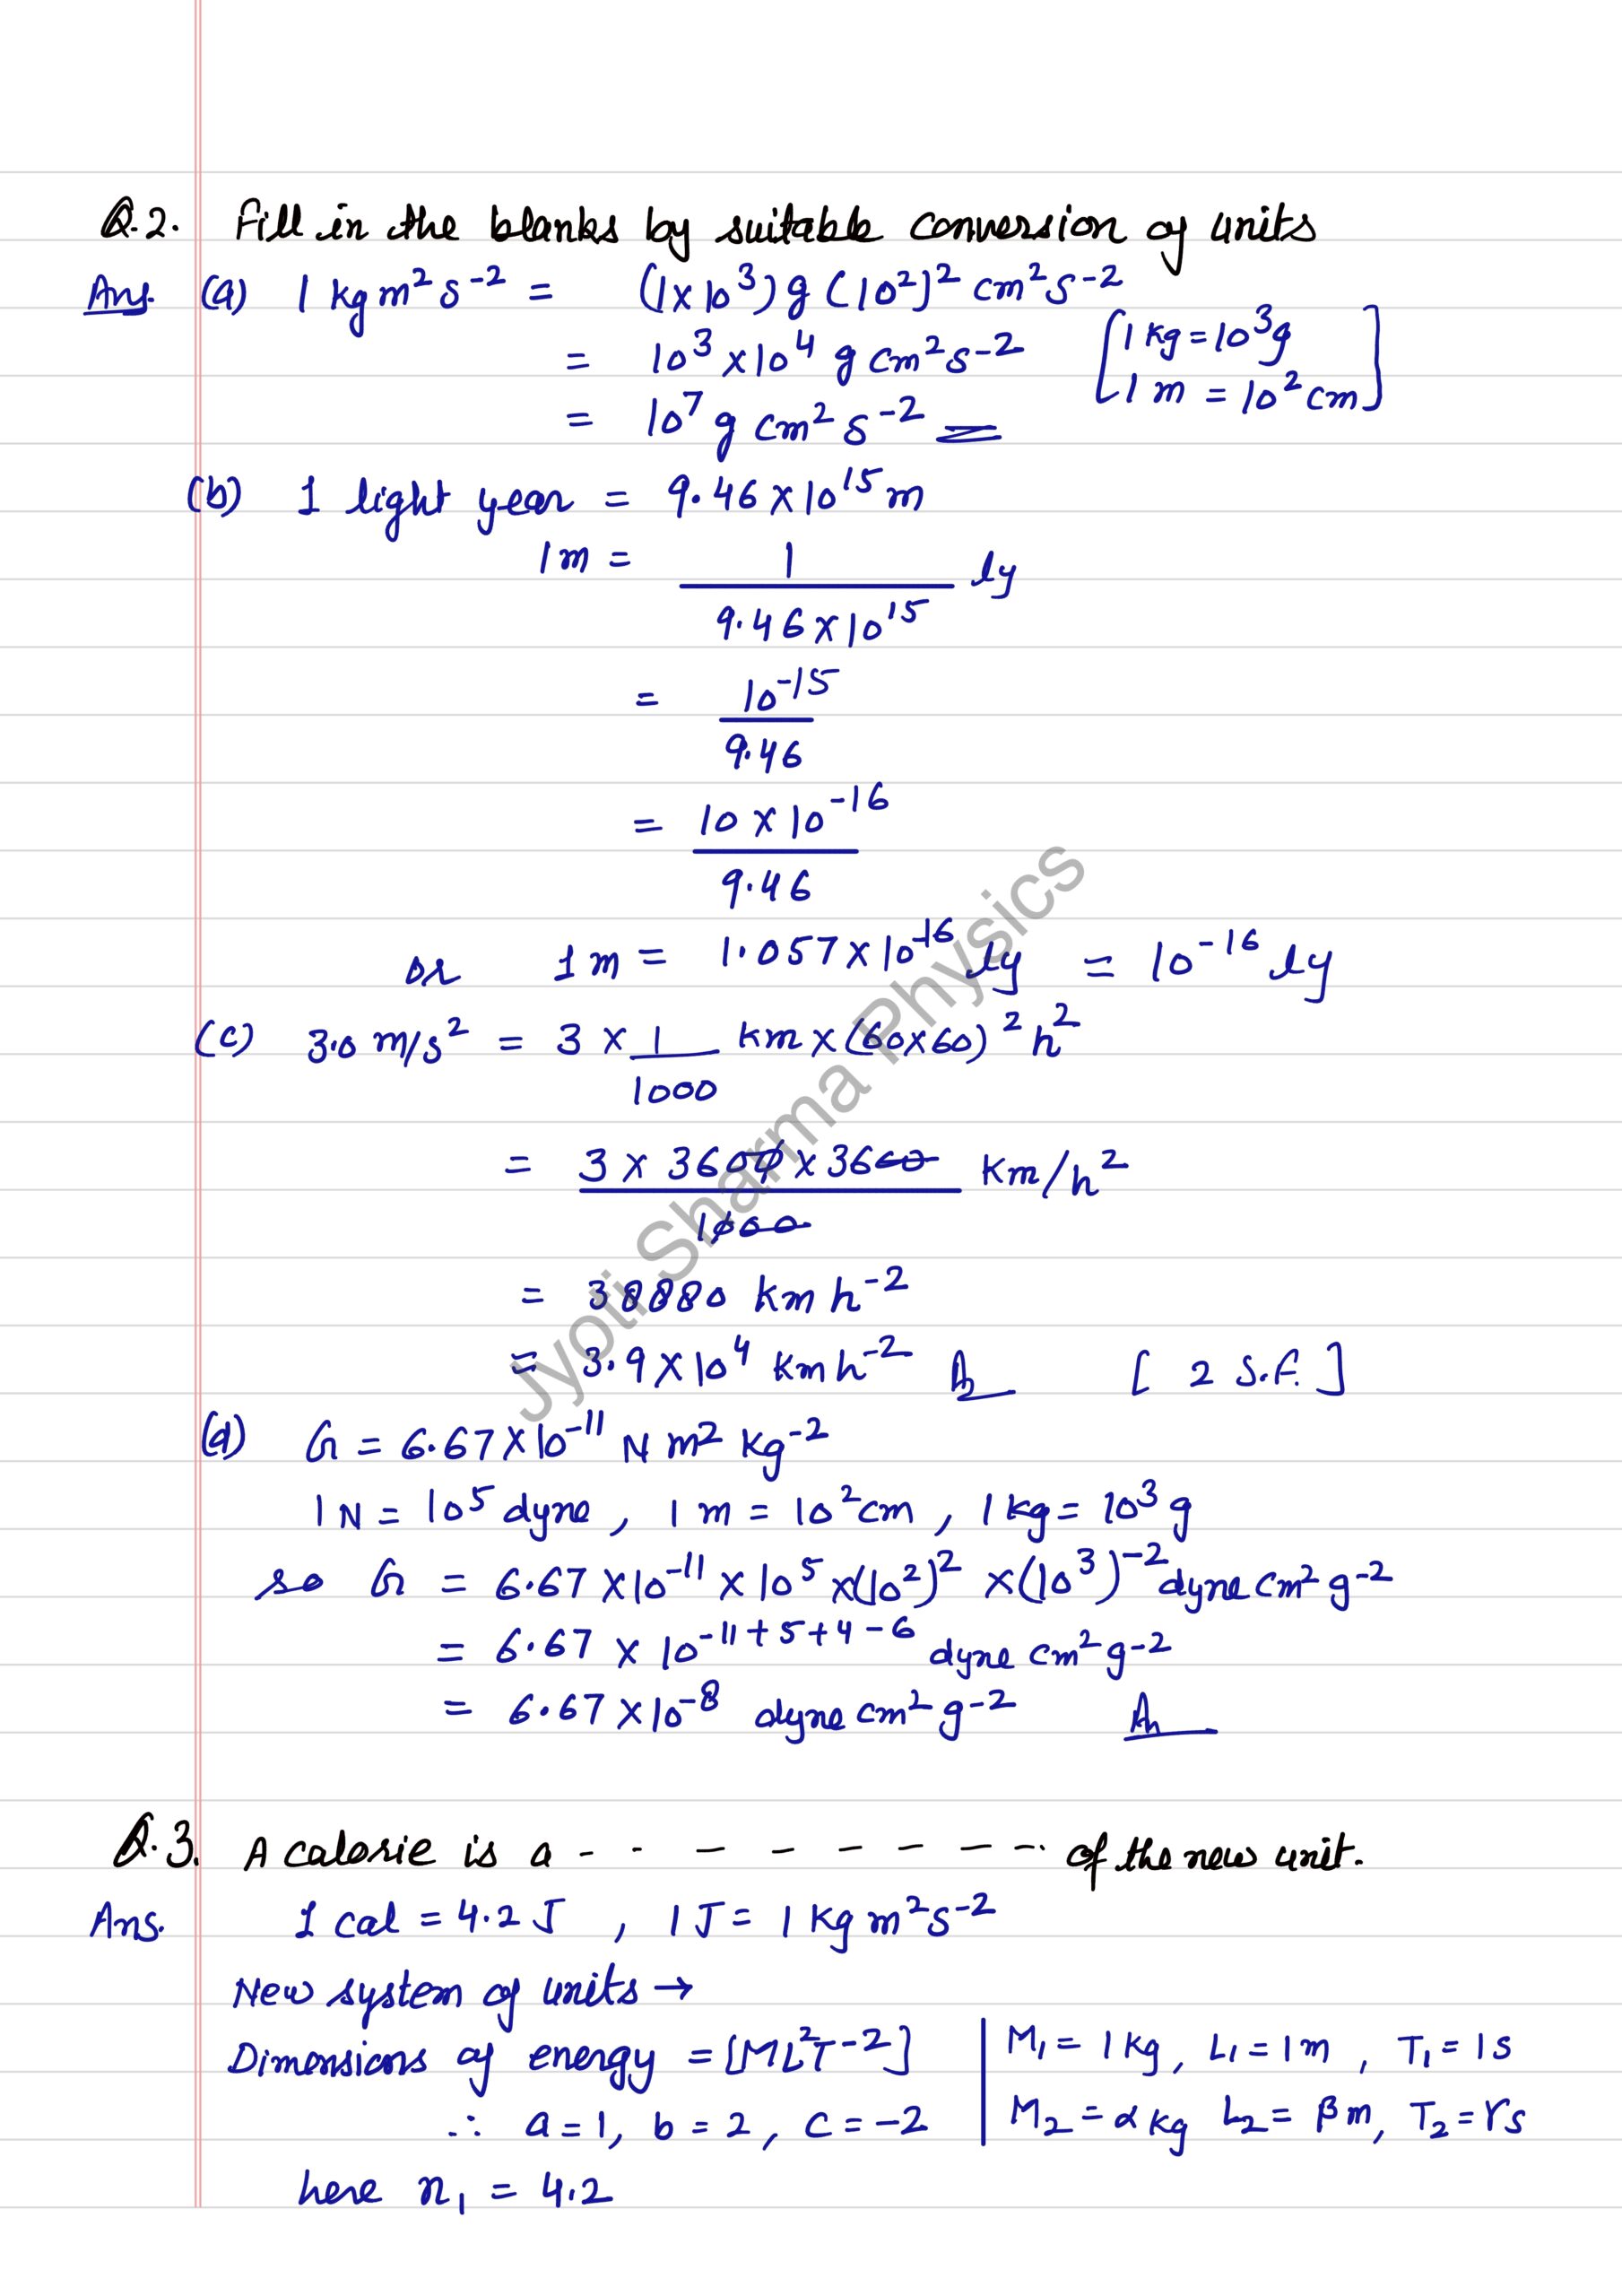 Q.2. Fill in the blanks by suitable conversion of units
Ans. (a) 1 kg m² s⁻² = (1×10³) g (10²)² cm² s⁻²
= 10³ × 10⁴ g cm² s⁻² [1 kg = 10³ g
1 m = 10² cm]
= 10⁷ g cm² s⁻²
(b) 1 light year = 9.46 × 10¹⁵ m
1 m = 1 / 9.46 × 10¹⁵ ly
= 10⁻¹⁵ / 9.46
= 10 × 10⁻¹⁶ / 9.46
or 1 m = 1.057 × 10⁻¹⁶ ly = 10⁻¹⁶ ly
(c) 3.0 m/s² = 3 × 1/1000 km × (60×60)² h²
= 3 × 3600 × 3600 / 1000 Km/h²
= 38880 Km h⁻²
= 3.9 × 10⁴ Km h⁻² A [2 S.F.]
(d) G = 6.67 × 10⁻¹¹ N m² Kg⁻²
1 N = 10⁵ dyne, 1 m = 10² cm, 1 kg = 10³ g
so G = 6.67 × 10⁻¹¹ × 10⁵ × (10²)² × (10³)⁻² dyne cm² g⁻²
= 6.67 × 10⁻¹¹⁺⁵⁺⁴⁻⁶ dyne cm² g⁻²
= 6.67 × 10⁻⁸ dyne cm² g⁻² An
Q.3. A calorie is a - - - - - - - - of the new unit.
Ans. 1 cal = 4.2 J , 1 J = 1 Kg m² s⁻²
New system of units →
Dimensions of energy = [ML²T⁻²] | M₁ = 1 Kg, L₁ = 1 m , T₁ = 1 s
∴ a = 1, b = 2, c = -2 | M₂ = α kg L₂ = β m, T₂ = γ s
here n₁ = 4.2
Jyoti Sharma Physics